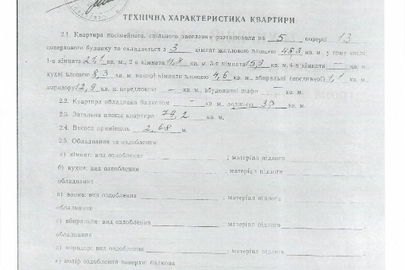 ТЕХНІЧНА ХАРАКТЕРИСТИКА КВАРТИРИ
2.1. Квартира розташована на 5 поверсі 13
поверхового будинку та складається з 3 кімнат житловою площею 48,8 кв. м, у тому числі
1-а кімната кв. м, 2-а кімната кв. м, 3-я кімната 15,9 кв. м, 4-а кімната — кв. м,
кухні площею 8,3 кв. м, ванної кімнати площею 4,6 кв. м, вбиральні 1,1 кв. м,
коридору 12,9 кв. м, — кв. м, вбудованих шафи — кв. м
2.2. Квартира обладнана балконом — кв. м, лоджією кв. м
2.3. Загальна площа квартири 79,2 кв. м
2.4. Висота приміщень 2,68 м
2.5. Обладнання та оздоблення:
а) кімнат: вид оздоблення ; матеріал підлоги
б) кухні: вид оздоблення ; матеріал підлоги
обладнання
в) ванни: вид оздоблення ; матеріал підлоги
обладнання
г) вбиральні: вид оздоблення ; матеріал підлоги
обладнання
д) коридору: вид оздоблення ; матеріал підлоги
е) колір оздоблення балкона